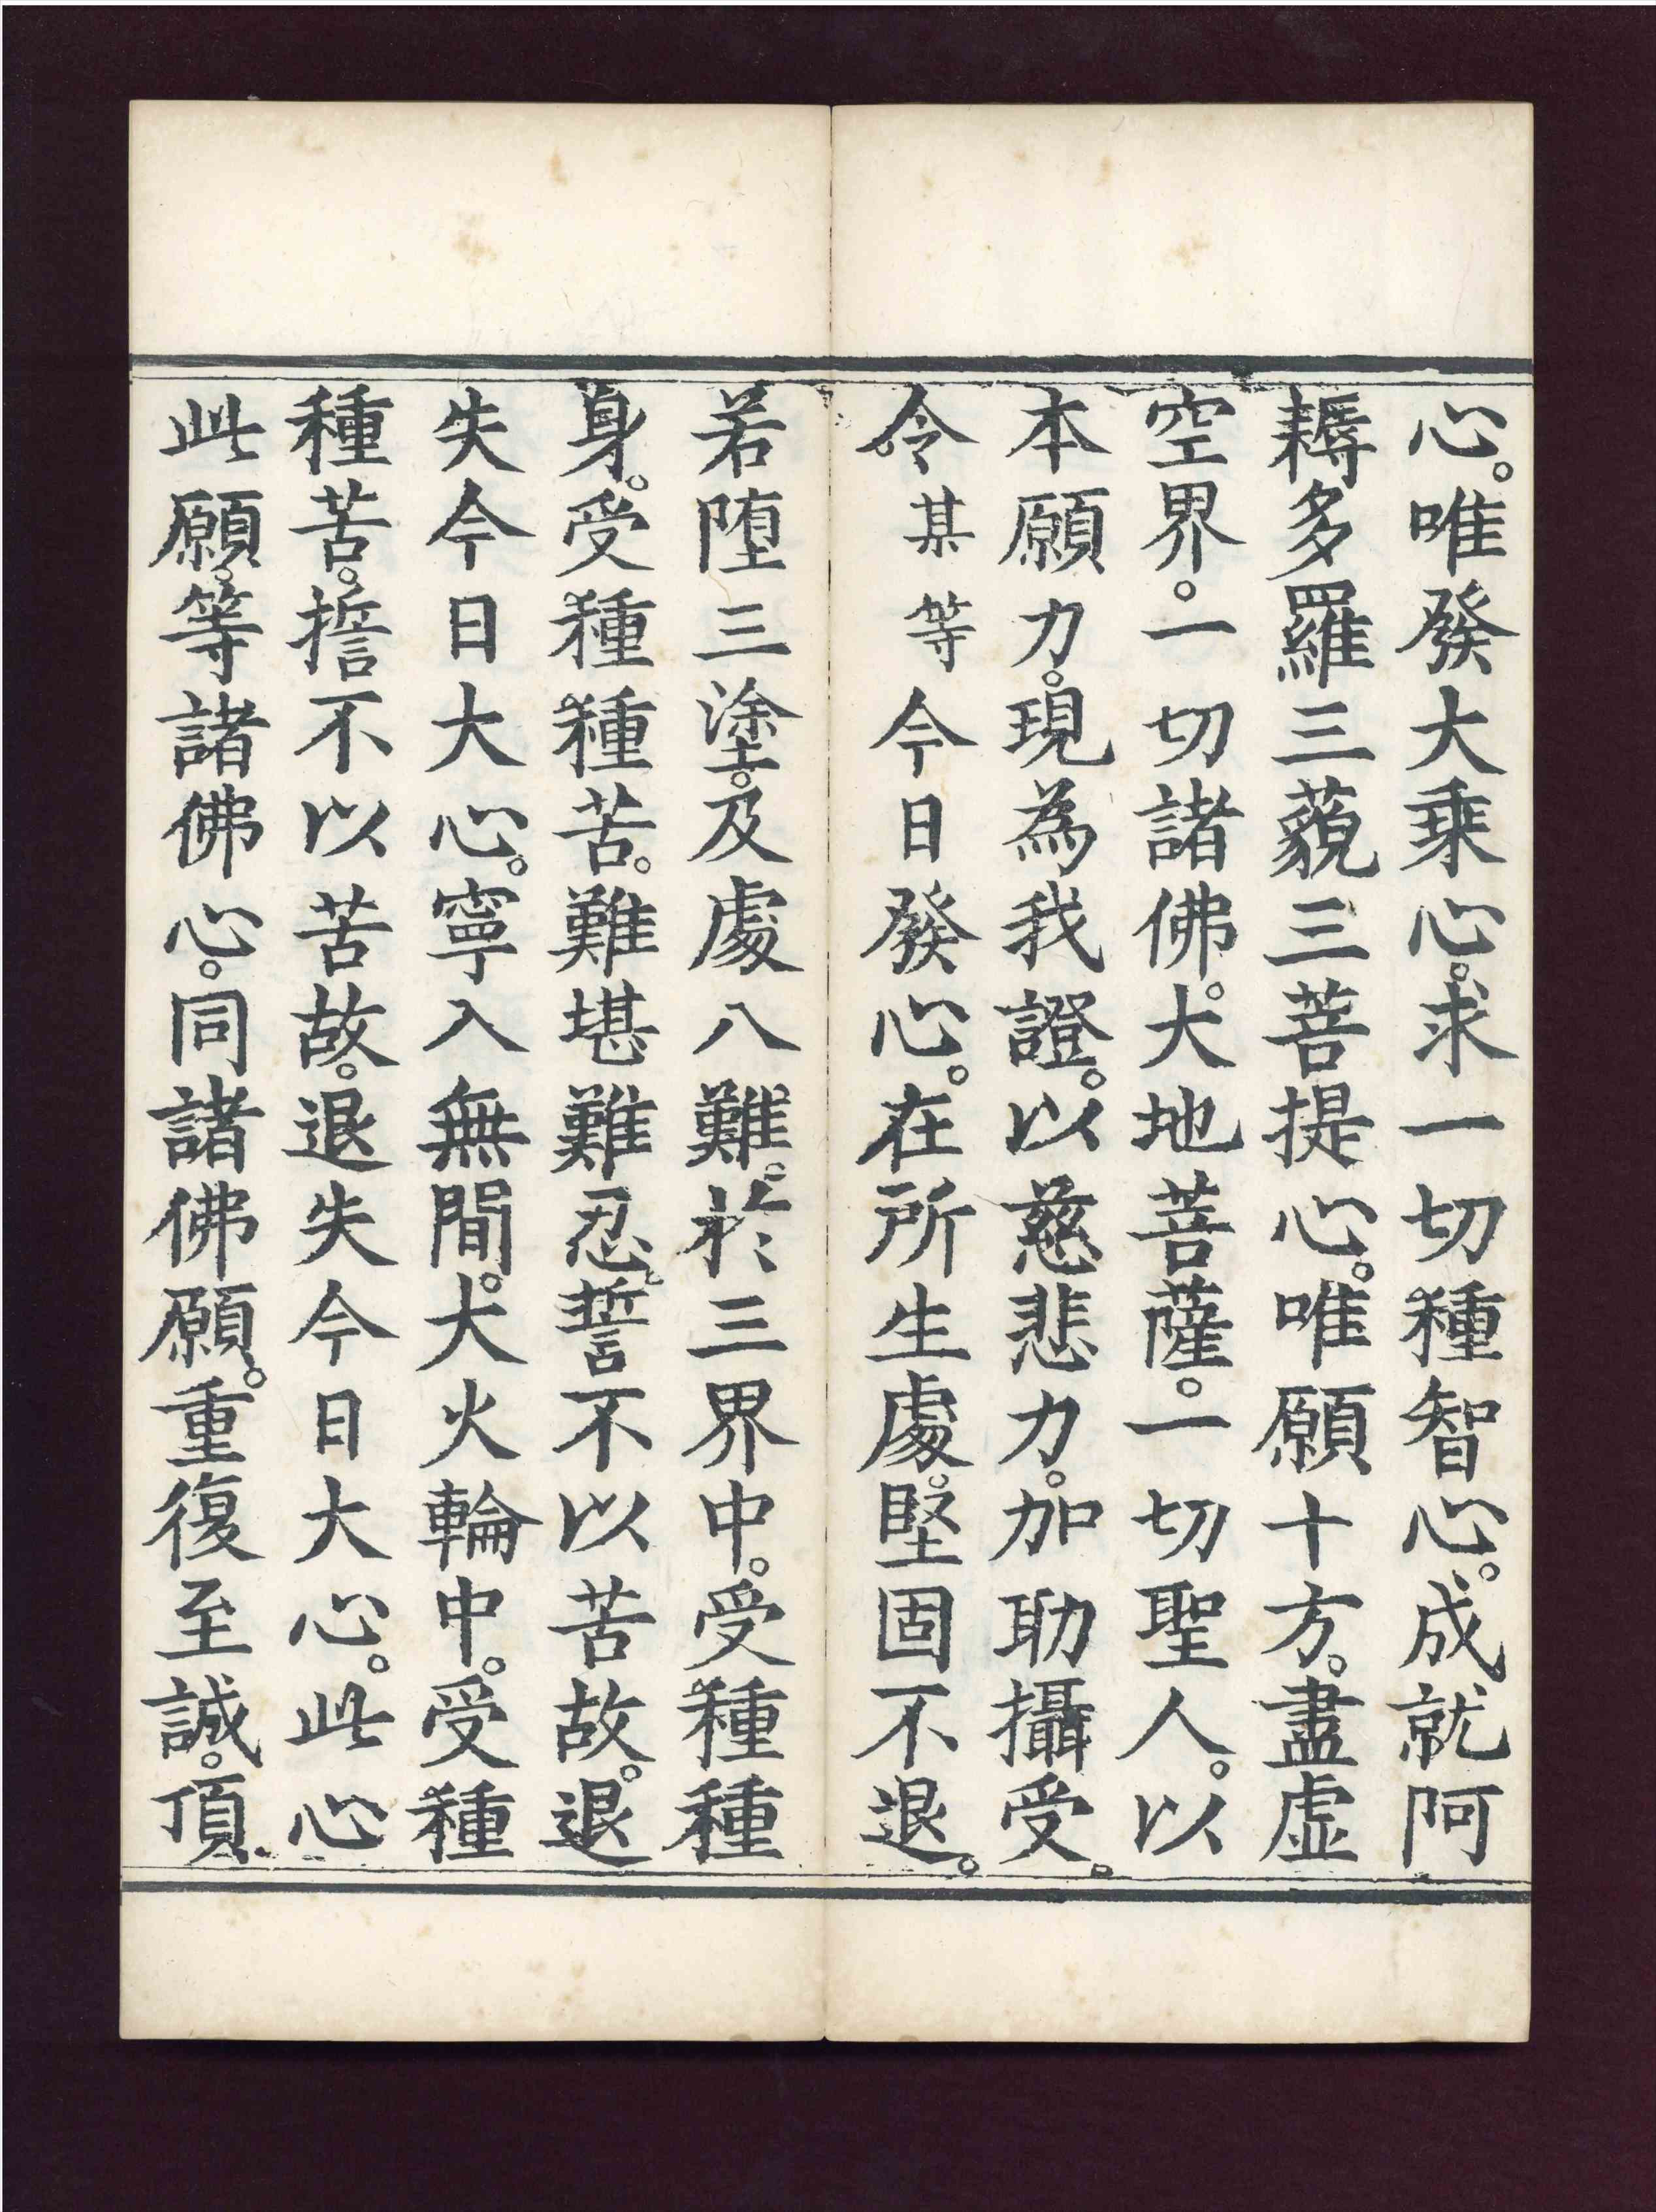 心。唯發大乘心。求一切種智心。成就阿
耨多羅三藐三菩提心。唯願十方。盡虛
空界。一切諸佛。大地菩薩。一切聖人。以
本願力。現為我證。以慈悲力。加助攝受。
令某等今日發心。在所生處。堅固不退。
若墮三塗。及處八難。於三界中。受種種
身。受種種苦。難堪難忍。誓不以苦故。退
失今日大心。寧入無間。大火輪中。受種
種苦。誓不以苦故。退失今日大心。此心
此願。等諸佛心。同諸佛願。重復至誠。頂